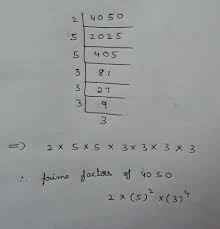 2 | 4050
5 | 2025
5 | 405
3 | 81
3 | 27
3 | 9
3
=> 2 × 5 × 5 × 3 × 3 × 3 × 3
∴ prime factors of 4050
2 × (5)² × (3)⁴